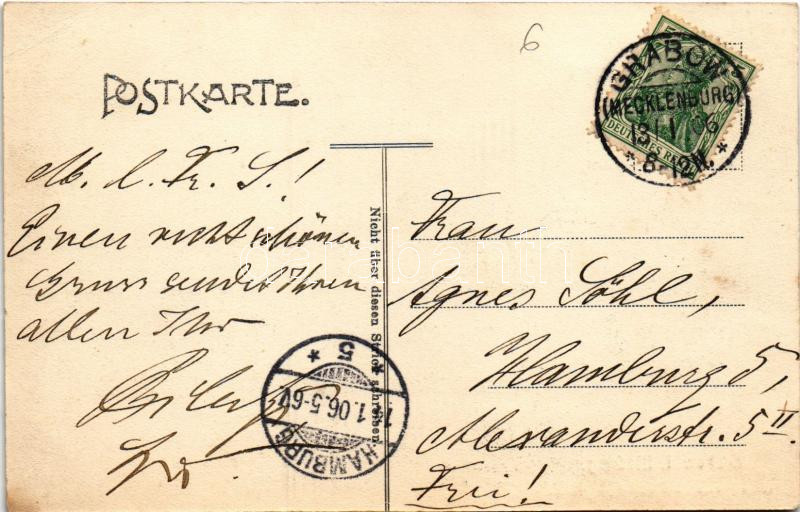 6
POSTKARTE.
GRABOW
(MECKLENBURG)
13 1 06
* 8-12N. *
DEUTSCHES REICH
M. l. Fr. S.!
Einen recht schönen
Gruss sendet Ihnen
allen Ihr
Nicht über diesen Strich schreiben
HAMBURG
14.1.06.5-6V
* 5 *
Frau
Agnes Söhl,
Hamburg 5,
Alexanderstr. 5 II
Frei!
darabanth